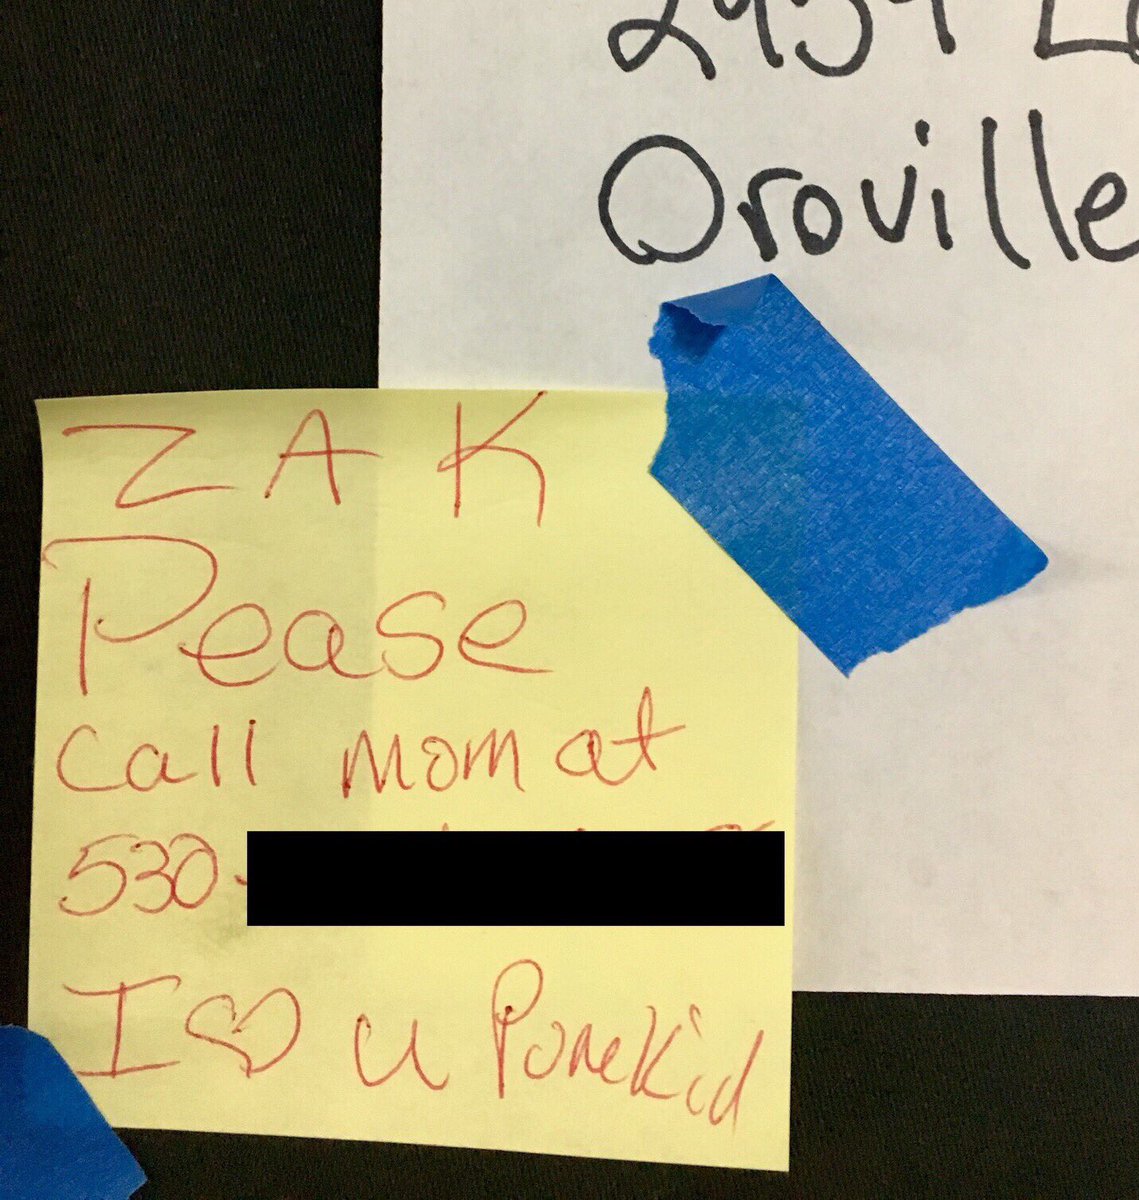 2454 L
Oroville
ZAK
Pease
call mom at
530-
I ♡ u PoneKid